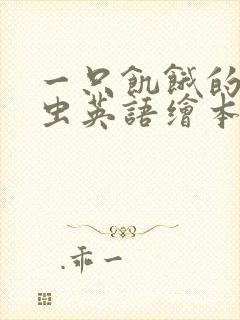 一只飢餓的
虫英語繪本
.乖一